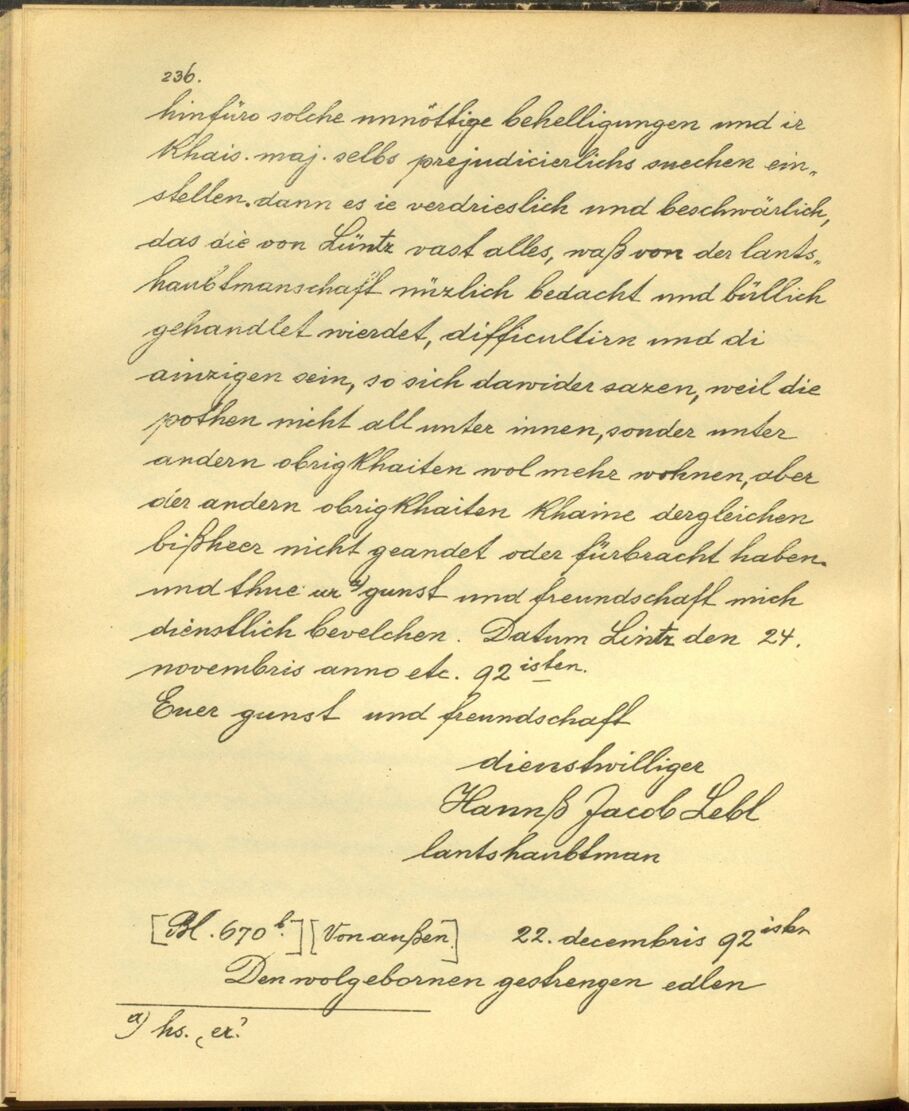 236.
hinfüro solche unnöttige behelligungen und ir
khais. maj. selbs prejudicierlichs suechen ein„
stellen. dann es ie verdrieslich und beschwärlich,
das die von Lüntz vast alles, waß von der lants„
haubtmanschafft nüzlich bedacht und büllich
gehandlet wierdet, difficultirn und di
ainzigen sein, so sich dawider sazen, weil die
pothen nicht all unter innen, sonder unter
andern obrigkhaiten wol mehr wohnen, aber
der andern obrigkhaiten khaine dergleichen
bißheer nicht geandet oder fürbracht haben.
und thue ur a) gunst und freundschafft mich
dienstlich bevelchen. Datum Lintz den 24.
novembris anno etc. 92 isten.
Euer gunst und freundschafft
dienstwilliger
Hannß Jacob Lebl
lantshaubtman
[Bl. 670 b.] [Von außen] 22. decembris 92 isten
Den wolgebornen gestrengen edlen
a) hs. ‚er‛